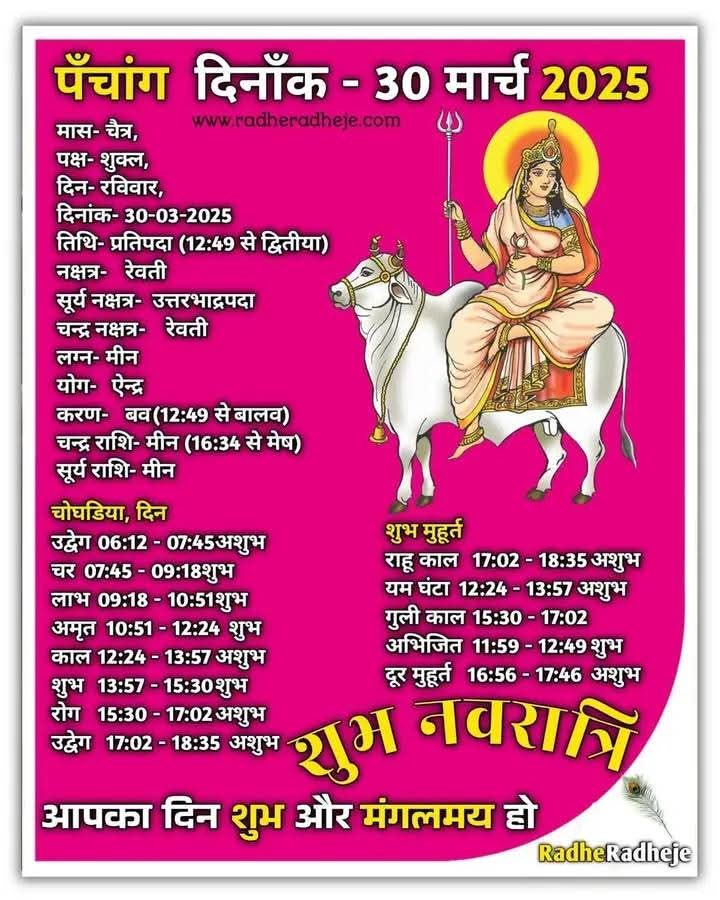 पँचांग दिनाँक - 30 मार्च 2025
www.radheradheje.com
मास- चैत्र,
पक्ष- शुक्ल,
दिन- रविवार,
दिनांक- 30-03-2025
तिथि- प्रतिपदा (12:49 से द्वितीया)
नक्षत्र- रेवती
सूर्य नक्षत्र- उत्तरभाद्रपदा
चन्द्र नक्षत्र- रेवती
लग्न- मीन
योग- ऐन्द्र
करण- बव(12:49 से बालव)
चन्द्र राशि- मीन (16:34 से मेष)
सूर्य राशि- मीन
चोघडिया, दिन
उद्वेग 06:12 - 07:45अशुभ
चर 07:45 - 09:18शुभ
लाभ 09:18 - 10:51शुभ
अमृत 10:51 - 12:24 शुभ
काल 12:24 - 13:57 अशुभ
शुभ 13:57 - 15:30शुभ
रोग 15:30 - 17:02अशुभ
उद्वेग 17:02 - 18:35 अशुभ
शुभ मुहूर्त
राहू काल 17:02 - 18:35 अशुभ
यम घंटा 12:24 - 13:57 अशुभ
गुली काल 15:30 - 17:02
अभिजित 11:59 - 12:49 शुभ
दूर मुहूर्त 16:56 - 17:46 अशुभ
शुभ नवरात्रि
आपका दिन शुभ और मंगलमय हो
RadheRadheje